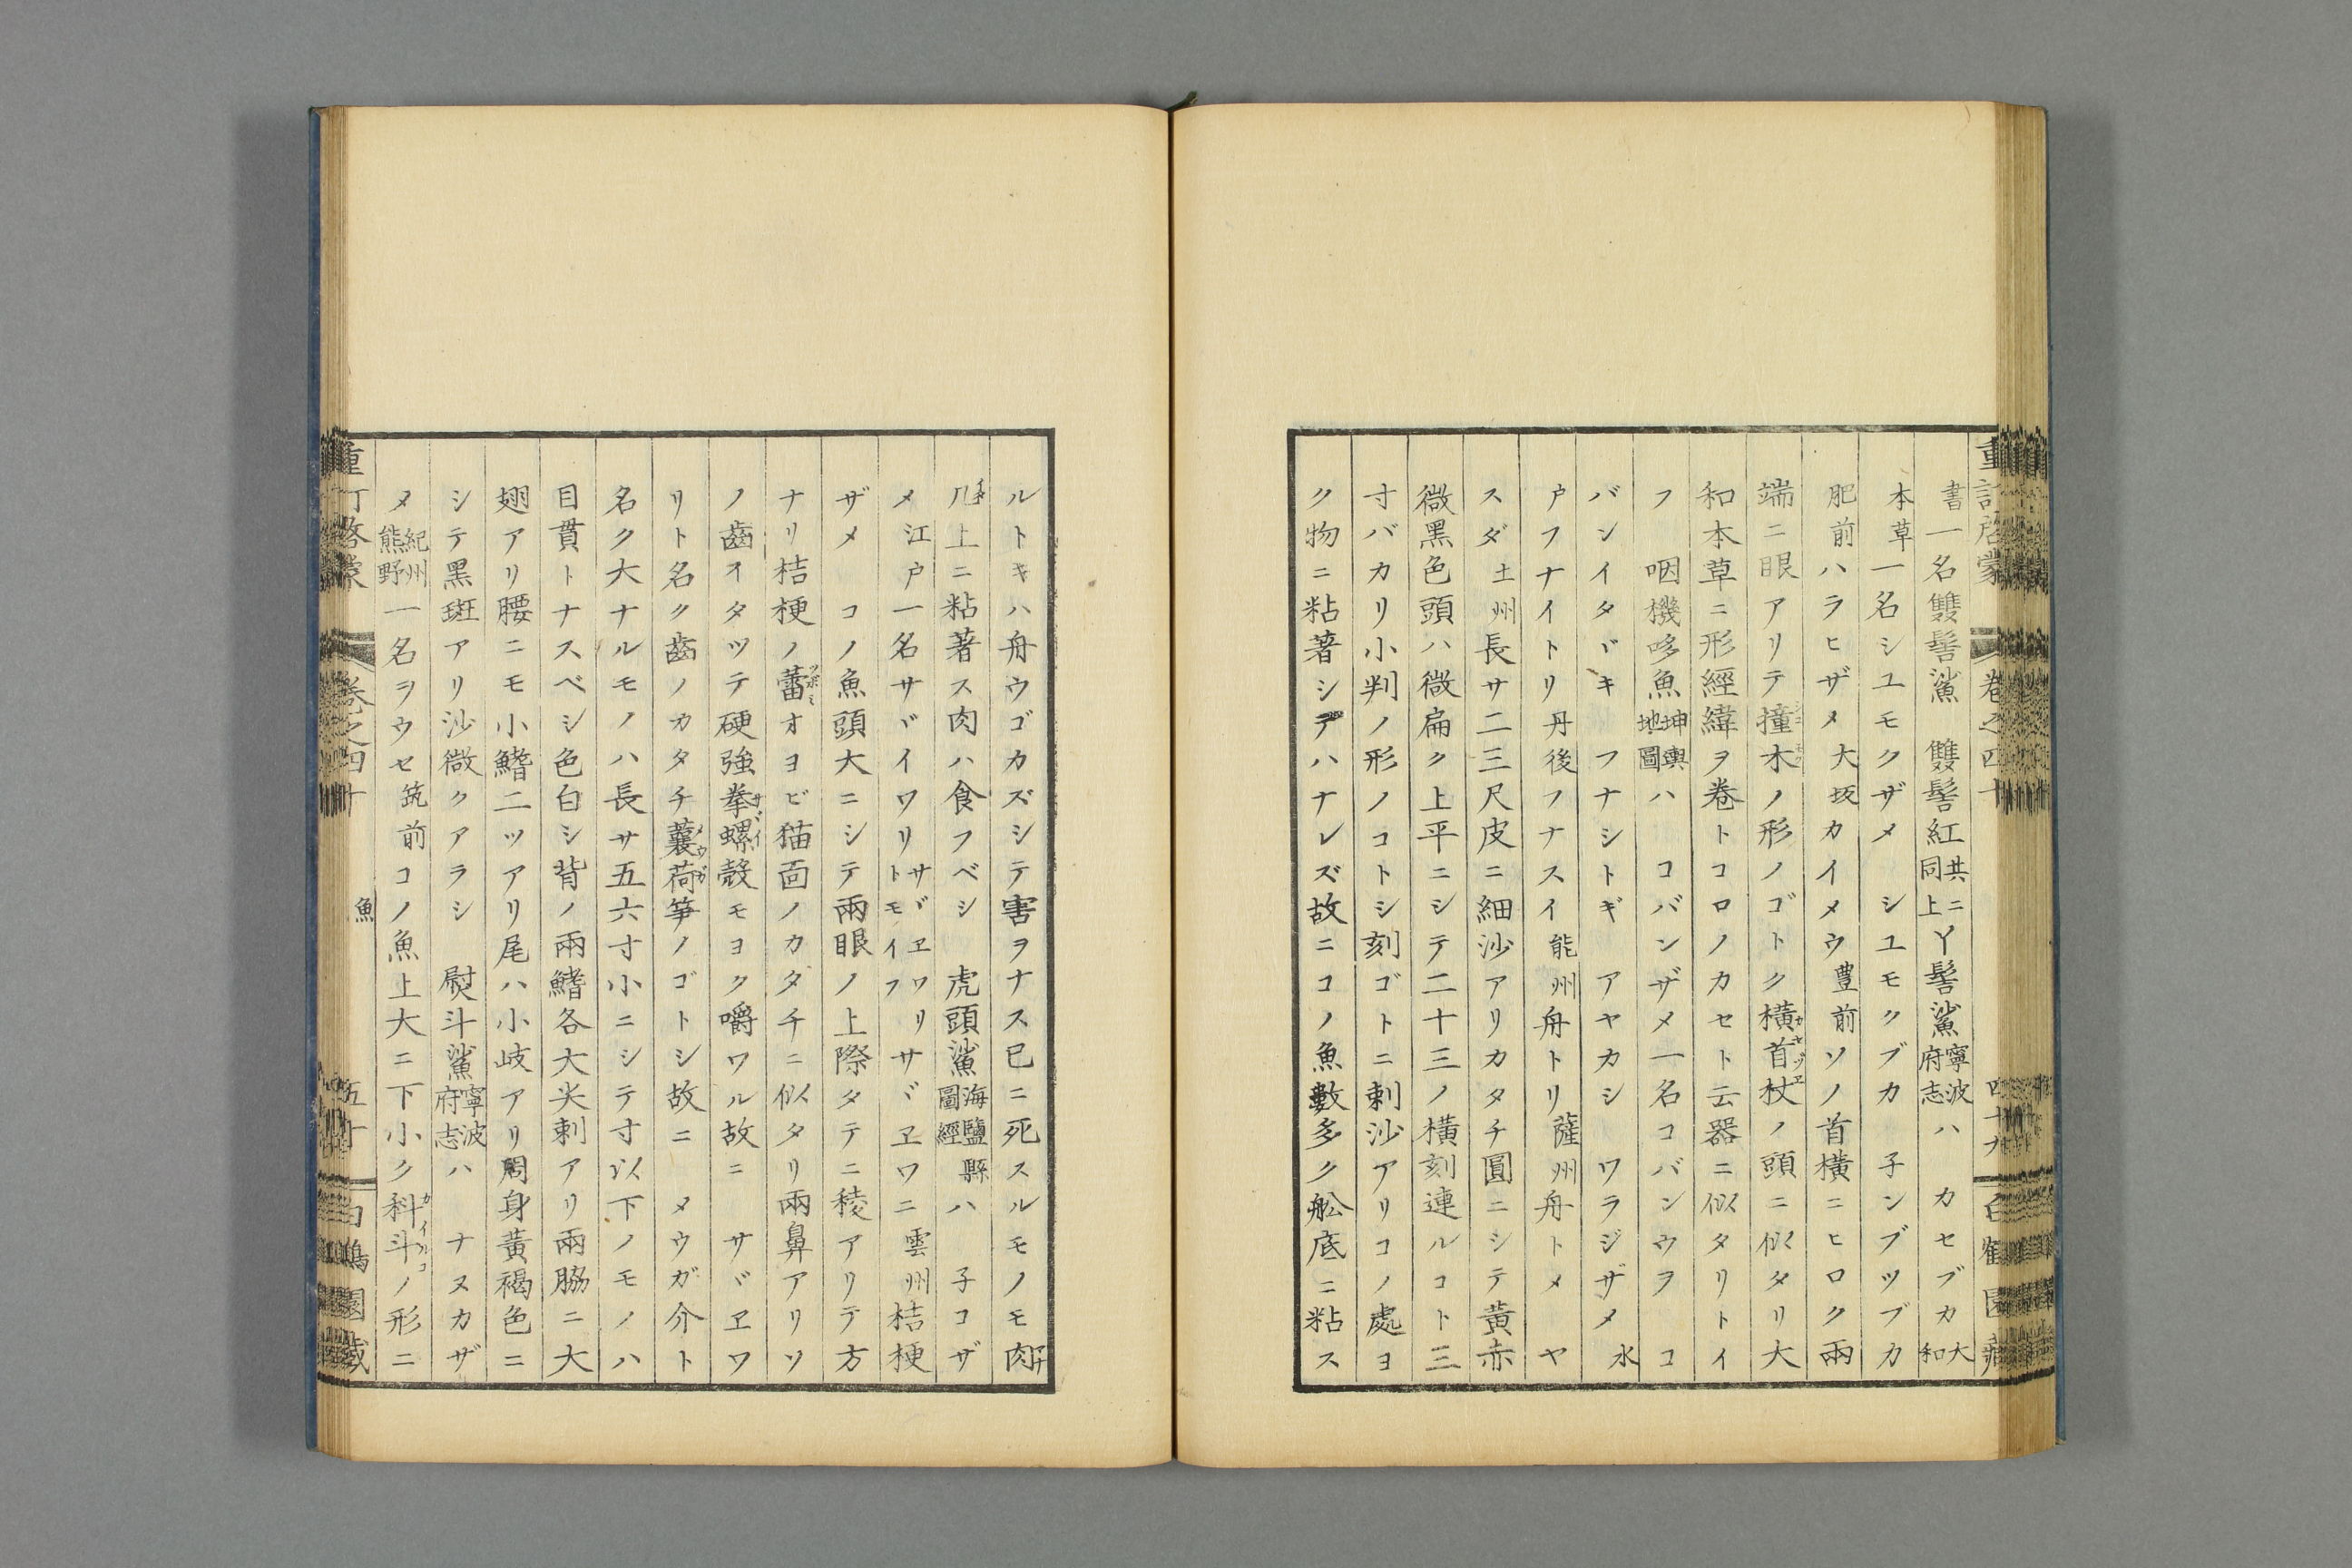 書一名雙髻鯊 雙髻紅共ニ同上丫髻鯊寧波府志ハ カセブカ大和
本草一名シユモクザメ シユモクブカ 子ンブツブカ
肥前ハラヒザメ大坂カイメウ豊前ソノ首横ニヒロク兩
端ニ眼アリテ撞木ノ形ノゴトク横首杖ノ頭ニ似タリ大
和本草ニ形經緯ヲ卷トコロノカセト云器ニ似タリトイ
フ 咽機哆魚坤輿地圖ハ コバンザメ一名コバンウヲ コ
バンイタヾキ フナシトギ アヤカシ ワラジザメ 水
戸フナイトリ丹後フナスイ能州舟トリ薩州舟トメ ヤ
スダ土州長サ二三尺皮ニ細沙アリカタチ圓ニシテ黄赤
微黑色頭ハ微扁ク上平ニシテ二十三ノ横刻連ルコト三
寸バカリ小判ノ形ノコトシ刻ゴトニ刺沙アリコノ處ヨ
ク物ニ粘著シテハナレズ故ニコノ魚數多ク舩底ニ粘ス
ルトキハ舟ウゴカズシテ害ヲナス已ニ死スルモノモ肉
上ニ粘著ス肉ハ食フベシ 虎頭鯊海鹽縣圖經ハ 子コザ
メ江戸一名サヾイワリサヾヱワリトモイフ サヾヱワニ雲州桔梗
ザメ コノ魚頭大ニシテ兩眼ノ上際タテニ稜アリテ方
ナリ桔梗ノ蕾オヨビ猫面ノカタチニ似タリ兩鼻アリソ
ノ齒イタツテ硬強拳螺殼モヨク嚼ワル故ニ サヾヱワ
リト名ク齒ノカタチ蘘荷笋ノゴトシ故ニ メウガ介ト
名ク大ナルモノハ長サ五六寸小ニシテ寸以下ノモノハ
目貫トナスベシ色白シ背ノ兩鰭各大尖刺アリ兩脇ニ大
翅アリ腰ニモ小鰭二ツアリ尾ハ小岐アリ周身黃褐色ニ
シテ黑斑アリ沙微クアラシ 熨斗鯊寧波府志ハ ナヌカザ
メ紀州熊野一名ヲウセ筑前コノ魚上大ニ下小ク科斗ノ形ニ
重訂啓蒙 卷之四十 魚 五十 白鶴園藏